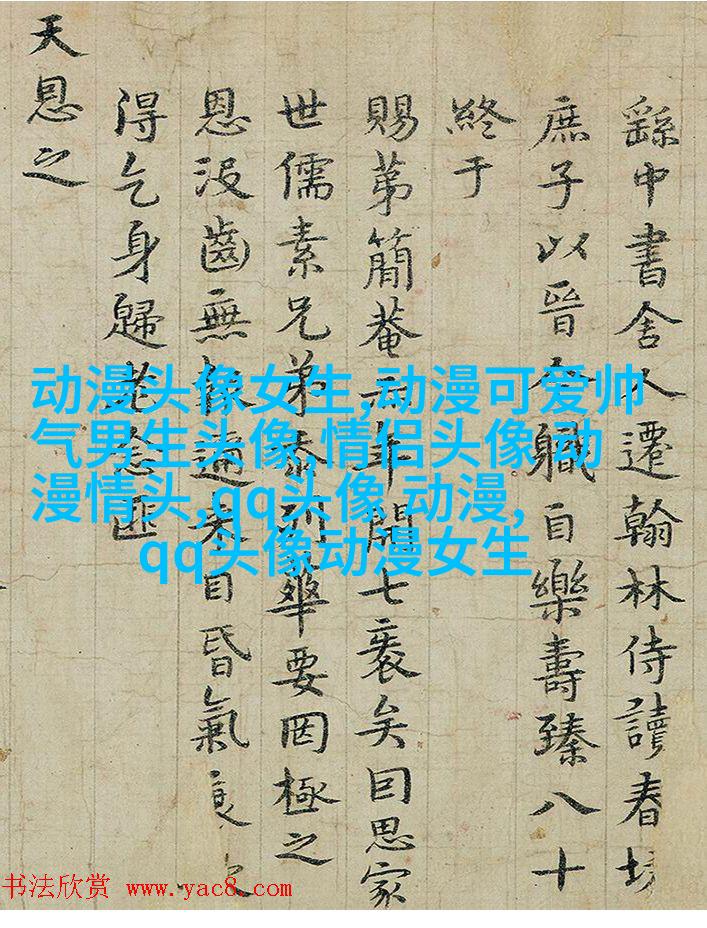 中書舍人遷翰林侍讀春坊
庶子以晉今職自樂壽臻八十
終于
賜第簡菴年開七袠矣囙思家
世儒素兄弟忝列華要罔極之
恩沒齒無報邇來目昏氣衰
得乞身歸老匪
天恩之
动漫头像女生,动漫可爱帅
气男生头像,情侣头像 动
漫情头,qq头像 动漫,
qq头像动漫女生
书法欣赏 www.yac8.com